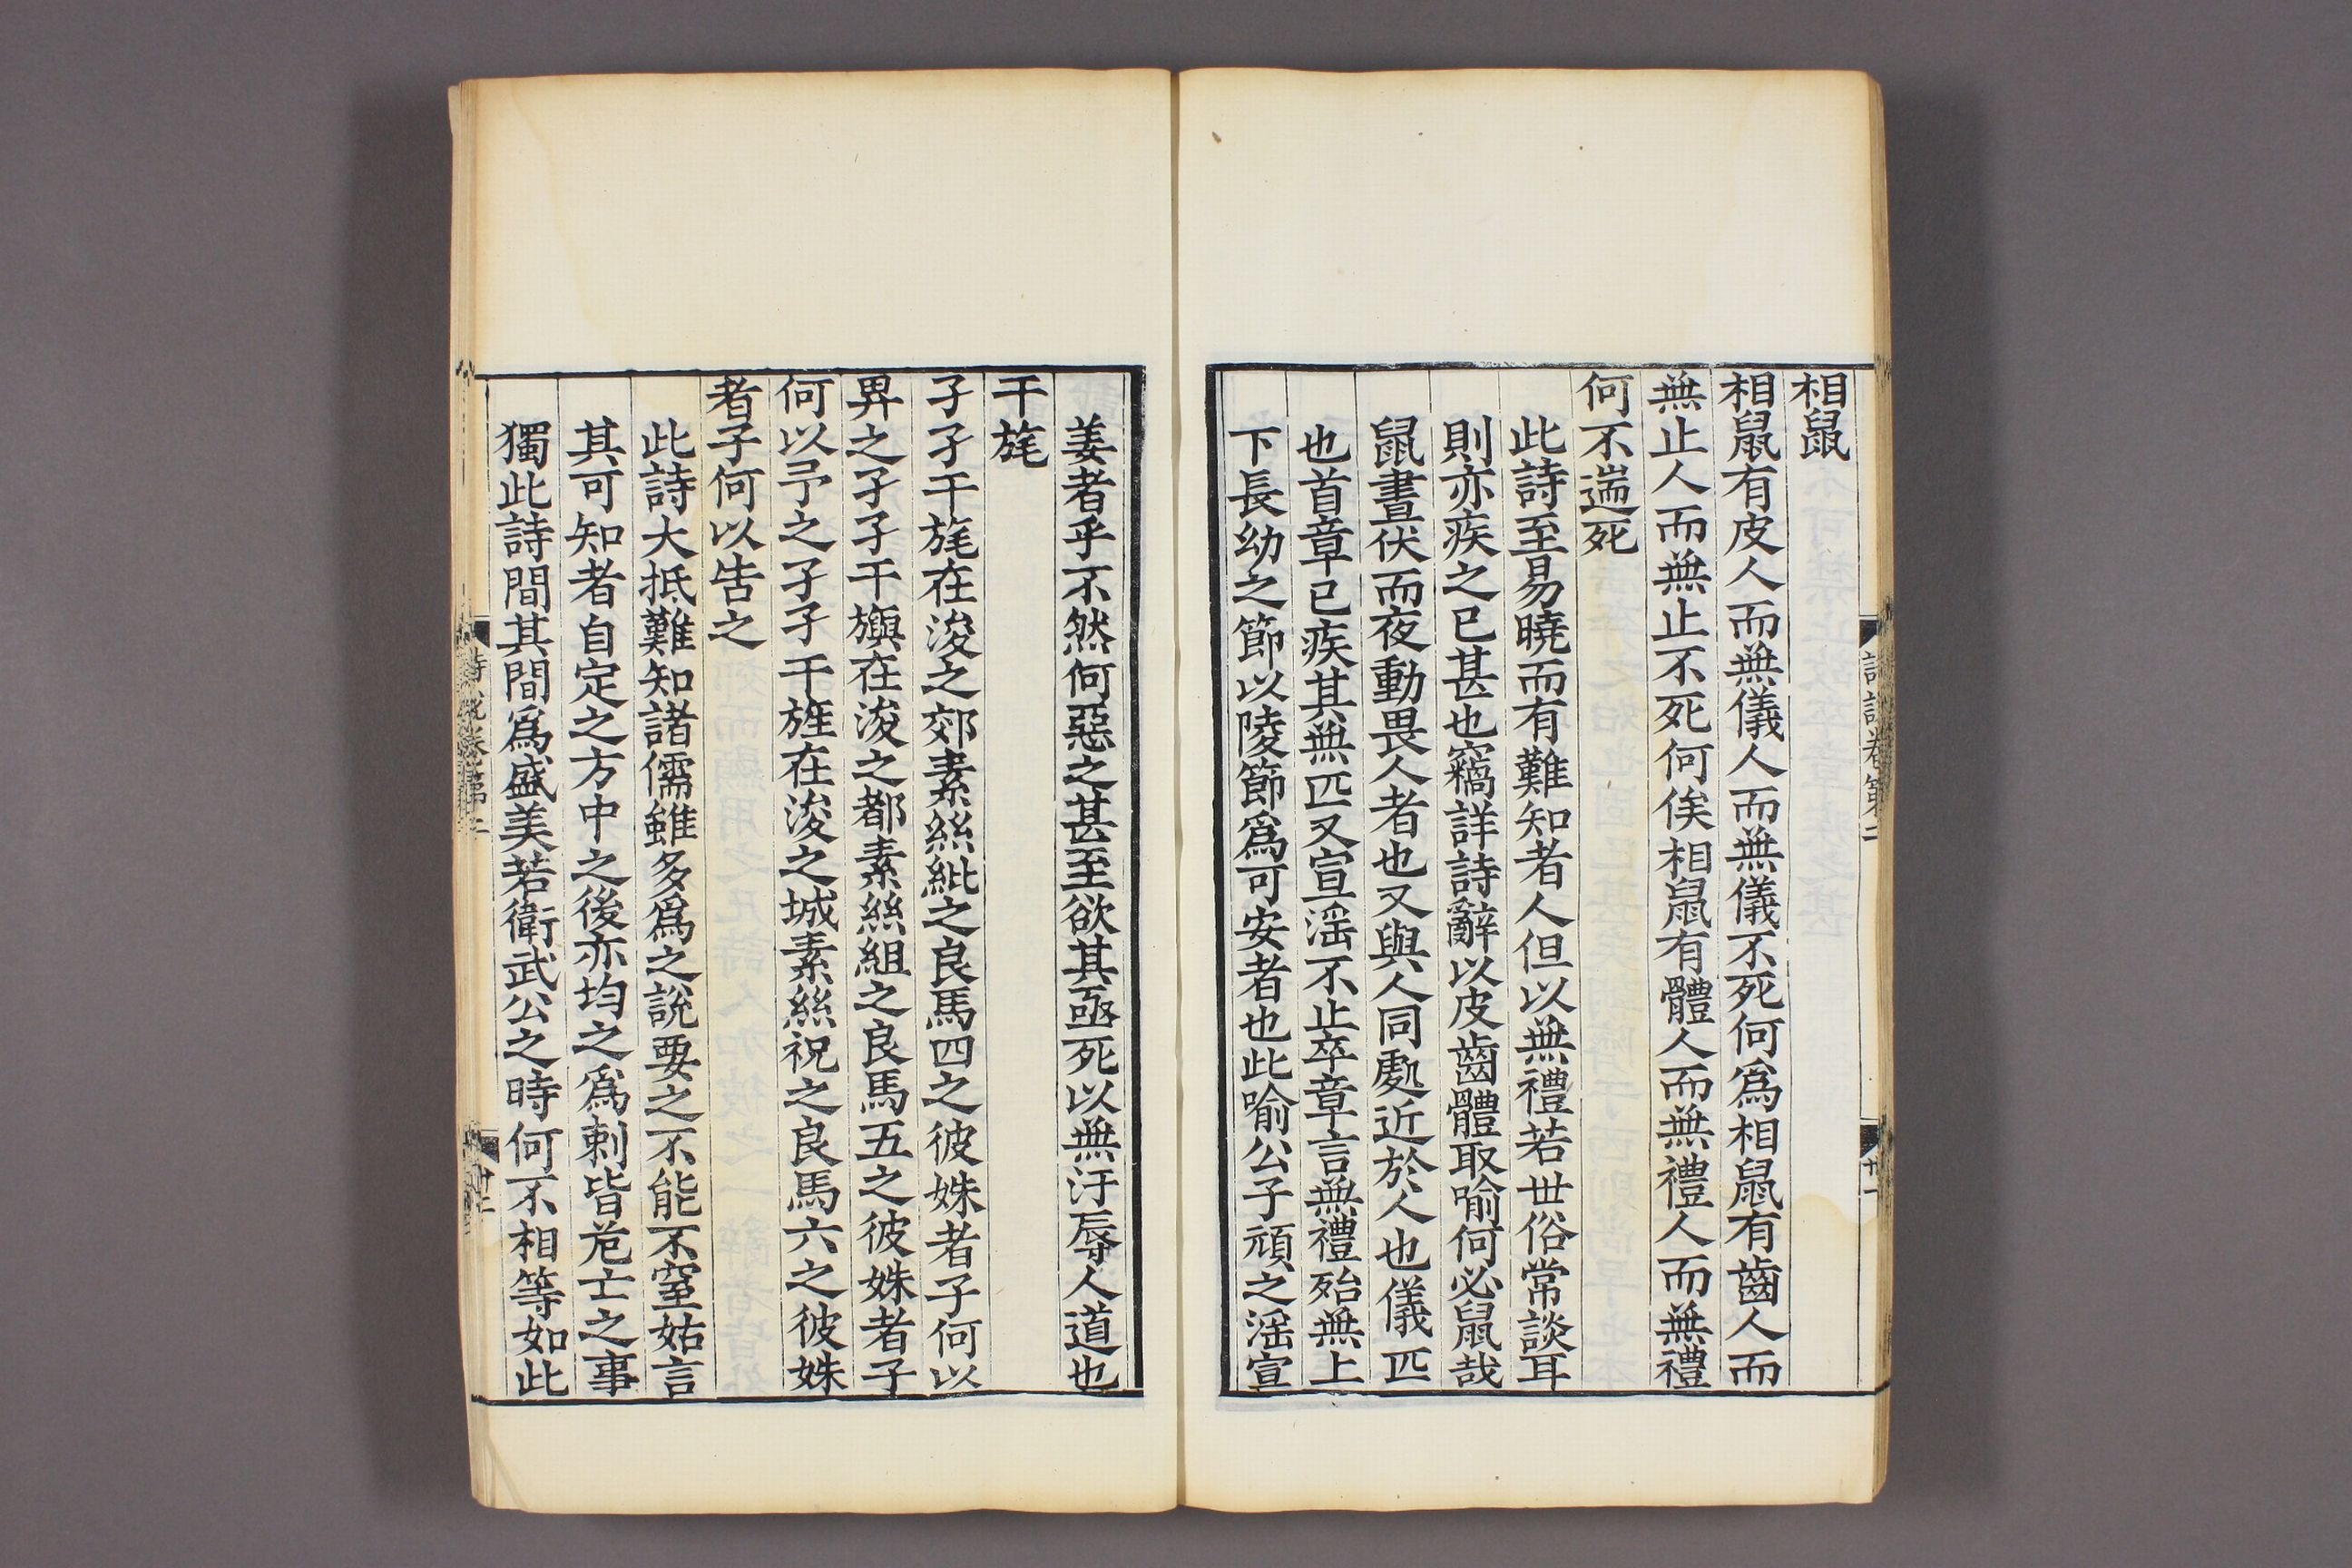 相鼠
相鼠有皮人而無儀人而無儀不死何爲相鼠有齒人而
無止人而無止不死何俟相鼠有體人而無禮人而無禮
何不遄死
此詩至易曉而有難知者人但以無禮若世俗常談耳
則亦疾之已甚也竊詳詩辭以皮齒體取喻何必鼠哉
鼠晝伏而夜動畏人者也又與人同處近於人也儀匹
也首章已疾其無匹又宣滛不止卒章言無禮殆無上
下長幼之節以陵節爲可安者也此喻公子頑之滛宣
詩說卷第二
廿一
姜者乎不然何惡之甚至欲其亟死以無汙辱人道也
干旄
孑孑干旄在浚之郊素絲紕之良馬四之彼姝者子何以
畀之孑孑干旟在浚之都素絲組之良馬五之彼姝者子
何以予之孑孑干旌在浚之城素絲祝之良馬六之彼姝
者子何以告之
此詩大抵難知諸儒雖多爲之說要之不能不窒姑言
其可知者自定之方中之後亦均之爲刺皆危亡之事
獨此詩間其間爲盛美若衛武公之時何不相等如此
詩說卷第二